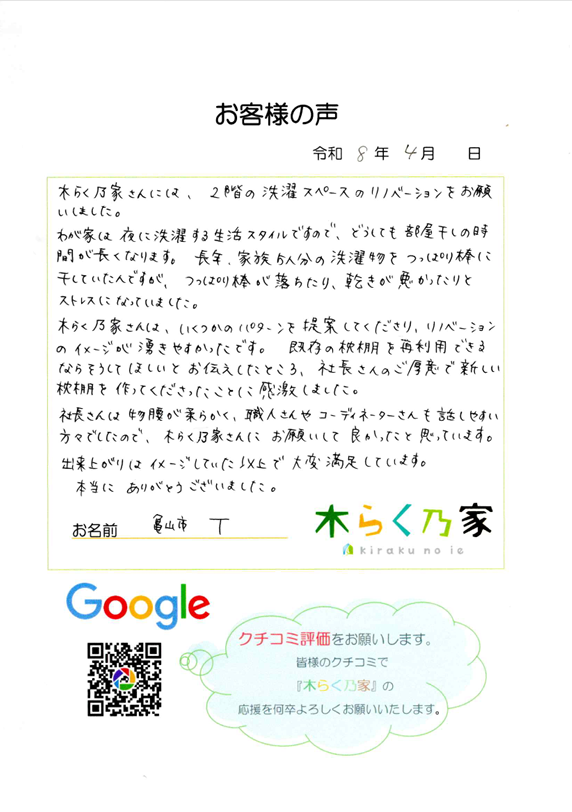 お客様の声
令和 8 年 4 月 日
木らく乃家さんには、2階の洗濯スペースのリノベーションをお願
いしました。
わが家は夜に洗濯する生活スタイルですので、どうしても部屋干しの時
間が長くなります。長年、家族5人分の洗濯物をつっぱり棒に
干していたんですが、つっぱり棒が落ちたり、乾きが悪かったりと
ストレスになっていました。
木らく乃家さんは、いくつかのパターンを提案してくださり、リノベーション
のイメージが湧きやすかったです。既存の枕棚を再利用できる
ならそうしてほしいとお伝えしたところ、社長さんのご厚意で新しい
枕棚を作ってくださったことに感激しました。
社長さんは物腰が柔らかく、職人さんやコーディネーターさんも話しやすい
方々でしたので、木らく乃家さんにお願いして良かったと思っています。
出来上がりはイメージしていた以上で大変満足しています。
本当にありがとうございました。
お名前 亀山市 T
木らく乃家
kiraku no ie
Google
クチコミ評価をお願いします。
皆様のクチコミで
『木らく乃家』の
応援を何卒よろしくお願いいたします。